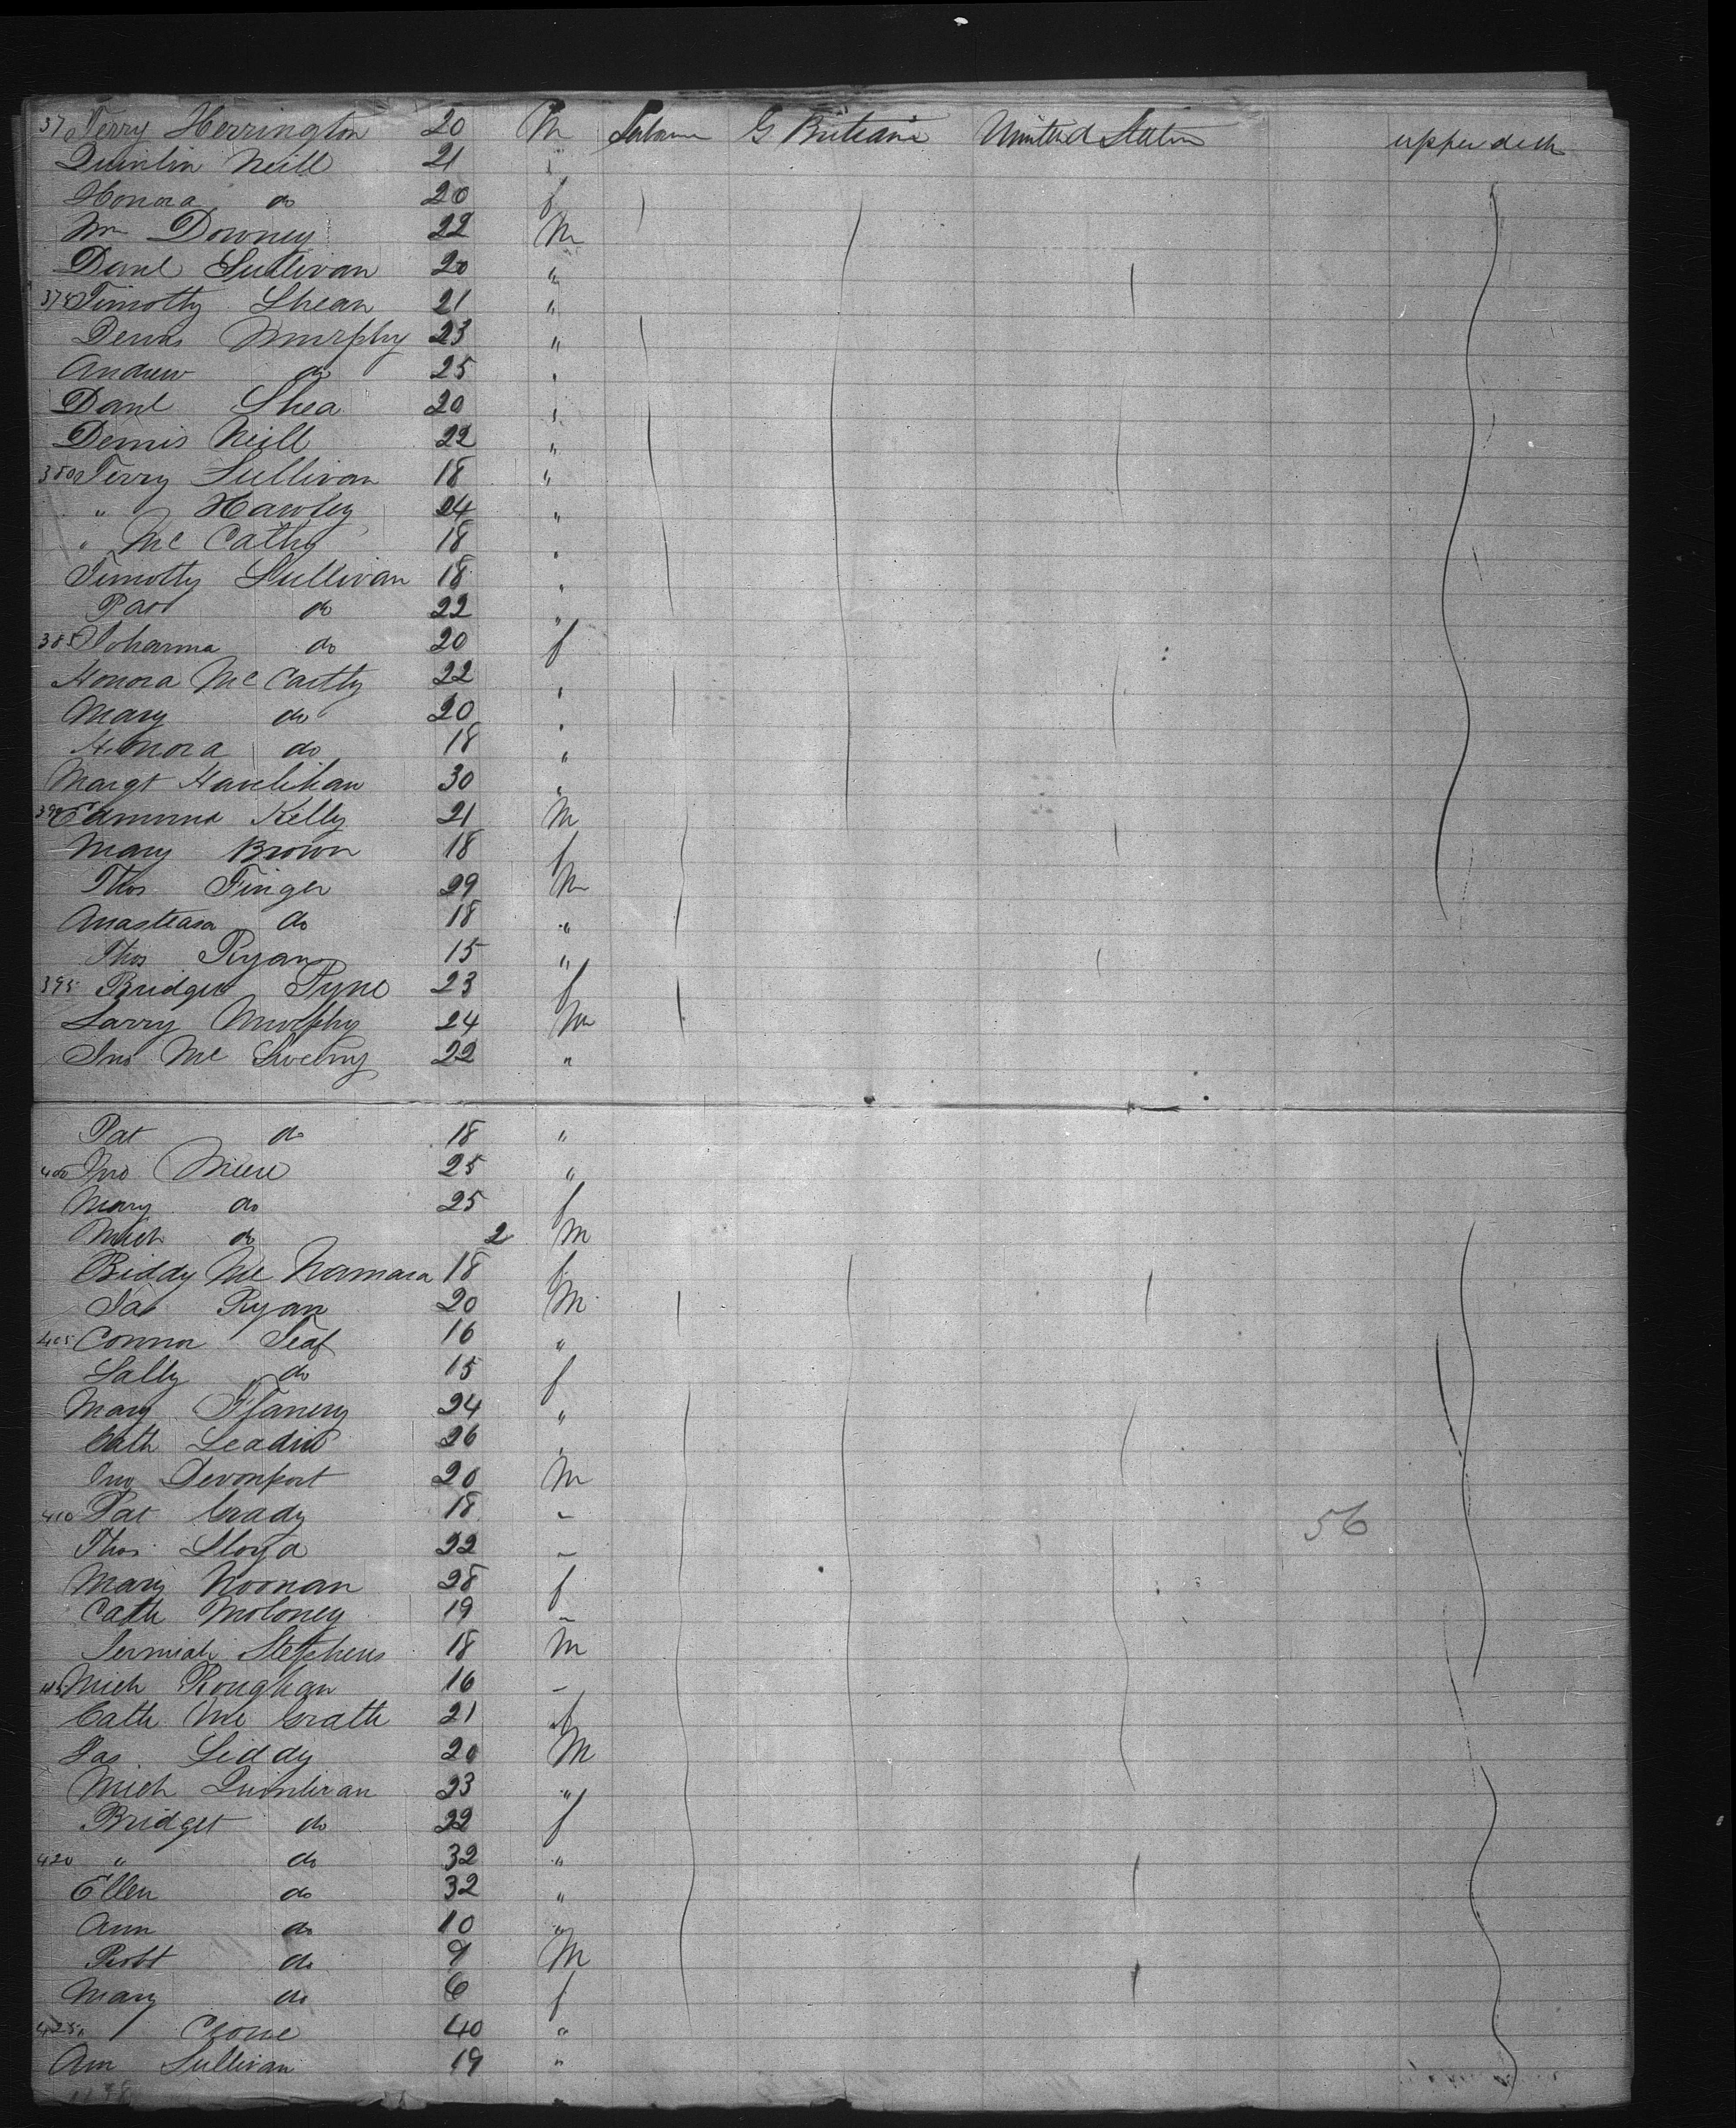 370 Jerry Herrington 20 M Labour G Britain United States upper deck
Quinlin Neill 21 "
Honora do 20 f
Wm Downey 22 M
Danl Sullivan 20 "
375 Timothy Shean 21 "
Denis Murphy 23 "
Andrew do 25 "
Danl Shea 20 "
Dennis Neill 22 "
380 Jerry Sullivan 18 "
" Hawley 24 "
" Mc Cathy 18 "
Timothy Sullivan 18 "
Pat do 22 "
385 Johanna do 20 f
Honora Mc Carthy 22 "
Mary do 20 "
Honora do 18 "
Margt Haulihan 30 "
390 Edmund Kelly 21 M
Mary Brown 18 f
Thos Finger 29 M
Anasteasa do 18 "
Thos Ryan 15 "
395 Bridget Pyne 23 f
Larry Murphy 24 M
Jno Mc Sweeny 22 "
Pat do 18 "
400 Jno Meere 25 "
Mary do 25 f
Mich do 2 M
Biddy Mc Namara 18 f
Pat Ryan 20 M
405 Connor Teaf 16 "
Sally do 15 f
Mary Flanery 24 "
Cath Leadin 26 "
Jno Devonport 20 M
410 Pat Grady 18 "
56
Thos Lloyd 22 "
Mary Noonan 28 f
Cath Moloney 19 "
Jermiah Stephens 18 M
415 Mich Roughan 16 "
Cath Mc Grath 21 f
Jas Liddy 20 M
Mich Quinlivan 23 "
Bridget do 22 f
420 " do 32 "
Ellen do 32 "
Ann do 10 "
Robt do 9 M
Mary do 6 f
425 " Crowe 40 "
Ann Sullivan 19 "